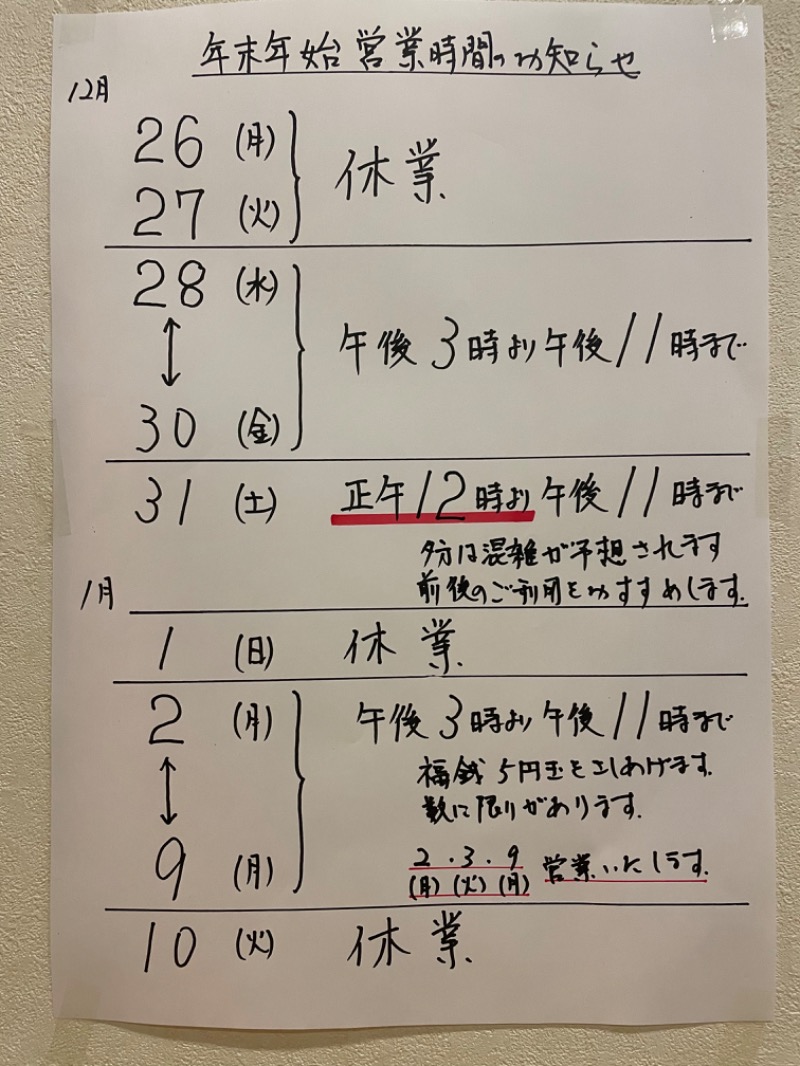 年末年始 営業時間のお知らせ
12月
26 (月)
27 (火)
休業
28 (水)
↕
30 (金)
午後3時より午後11時まで
31 (土) 正午12時より午後11時まで
夕方は混雑が予想されます
前後のご利用をおすすめします.
1月
1 (日) 休業
2 (月)
↕
9 (月)
午後3時より午後11時まで
福銭5円玉をさしあげます.
数に限りがあります.
2・3・9 営業いたします.
(月)(火)(月)
10 (火) 休業